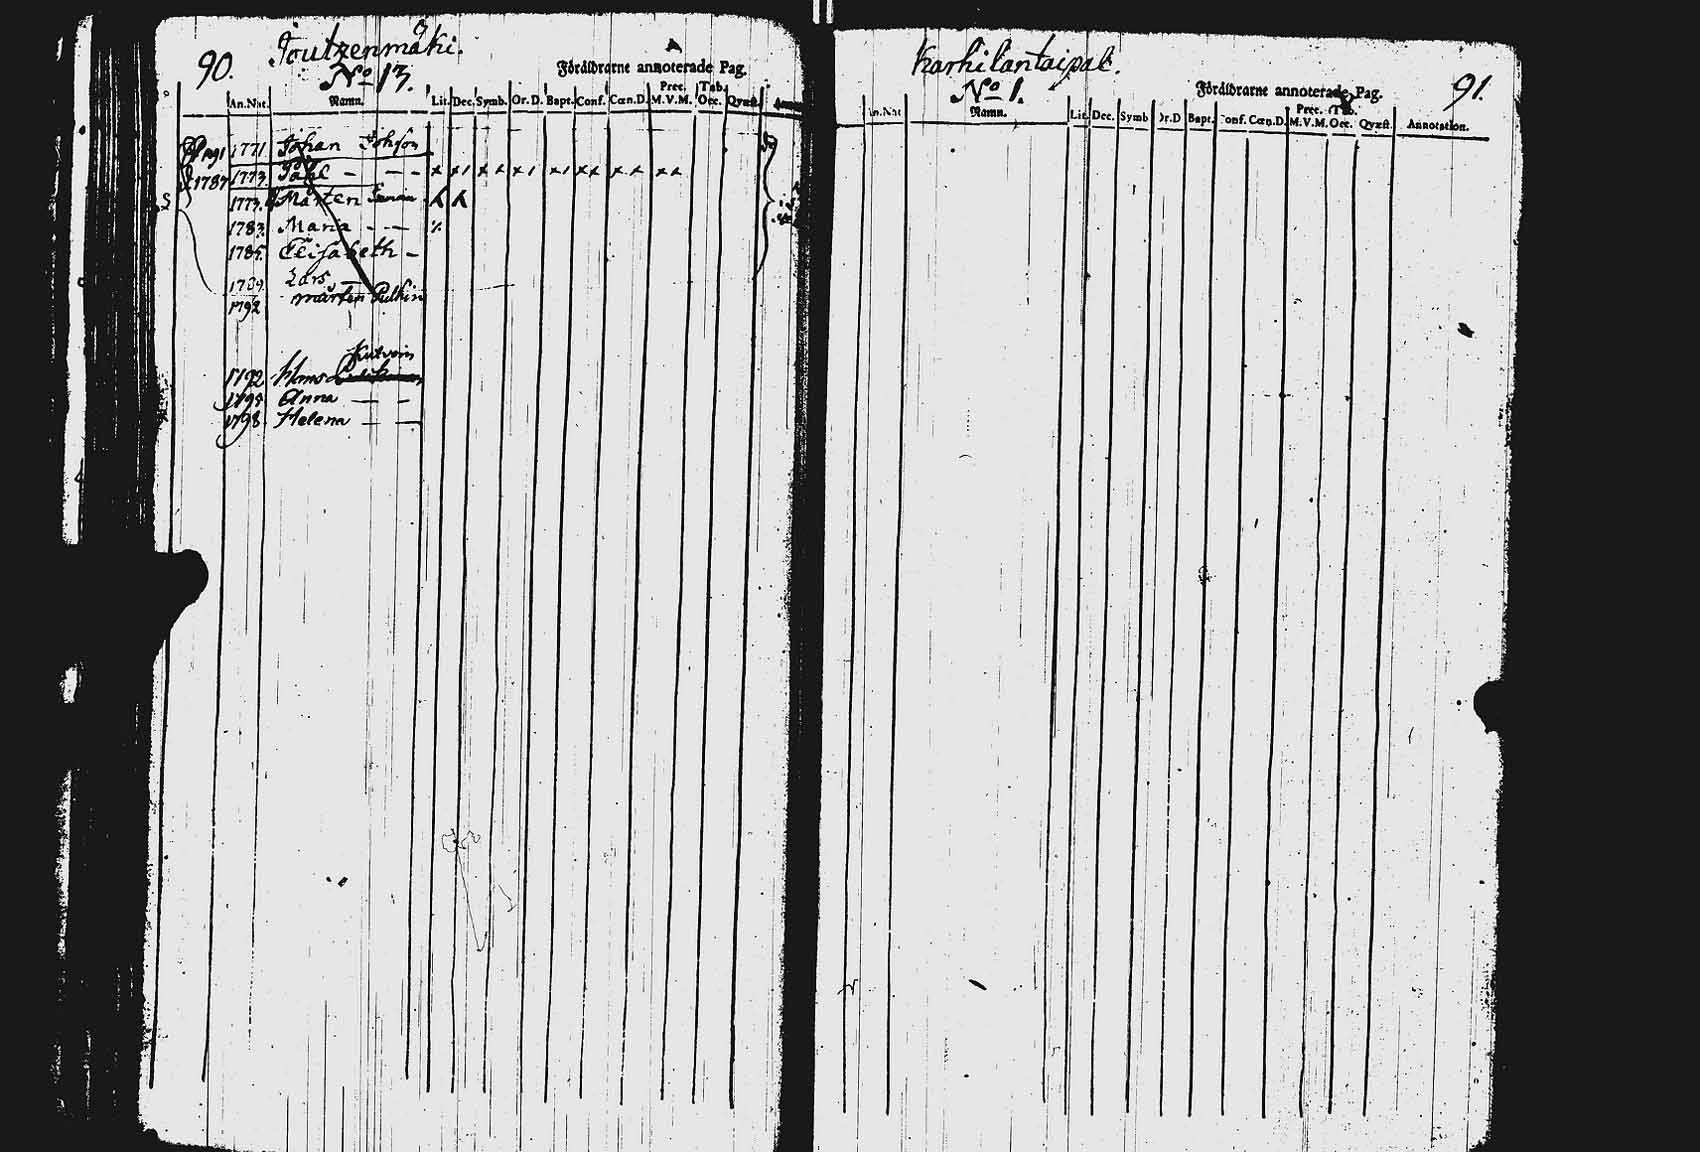 90. Joutzenmäki.
No 13.
Föräldrarne annoterade Pag.
An. Nat. Namn. Lit. Dec. Symb. Or. D. Bapt. Conf. Cœn. D. Prec. M.V.M. Tab. Oec. Qvæst.
1771 Johan
1787 1773 Påhl — — —
1773. Mårten
1783. Maria — —
1785. Elisabeth —
1789. Lars —
1792 Mårten Pulkin
1792 Hans
1795 Anna — —
1798 Helena — —
Karhilantaipal.
No 1.
Föräldrarne annoterade Pag. 91.
An. Nat Namn. Lit. Dec. Symb Or. D Bapt. Conf. Cœn. D. Prec. M.V.M. Tab. Oec. Qvæst. Annotation.